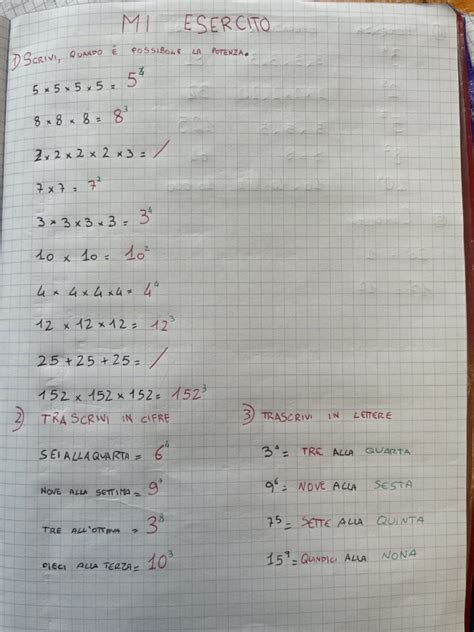 MI ESERCITO
1) SCRIVI, QUANDO È POSSIBOLE LA POTENZA.
5 x 5 x 5 x 5 = 5⁴
8 x 8 x 8 = 8³
2 x 2 x 2 x 2 x 3 = /
7 x 7 = 7²
3 x 3 x 3 x 3 = 3⁴
10 x 10 = 10²
4 x 4 x 4 x 4 = 4⁴
12 x 12 x 12 = 12³
25 + 25 + 25 = /
152 x 152 x 152 = 152³
2) TRASCRIVI IN CIFRE
SEI ALLA QUARTA = 6⁴
NOVE ALLA SETTIMA = 9⁷
TRE ALL'OTTAVA = 3⁸
DIECI ALLA TERZA = 10³
3) TRASCRIVI IN LETTERE
3⁴ = TRE ALLA QUARTA
9⁶ = NOVE ALLA SESTA
7⁵ = SETTE ALLA QUINTA
15⁹ = QUINDICI ALLA NONA